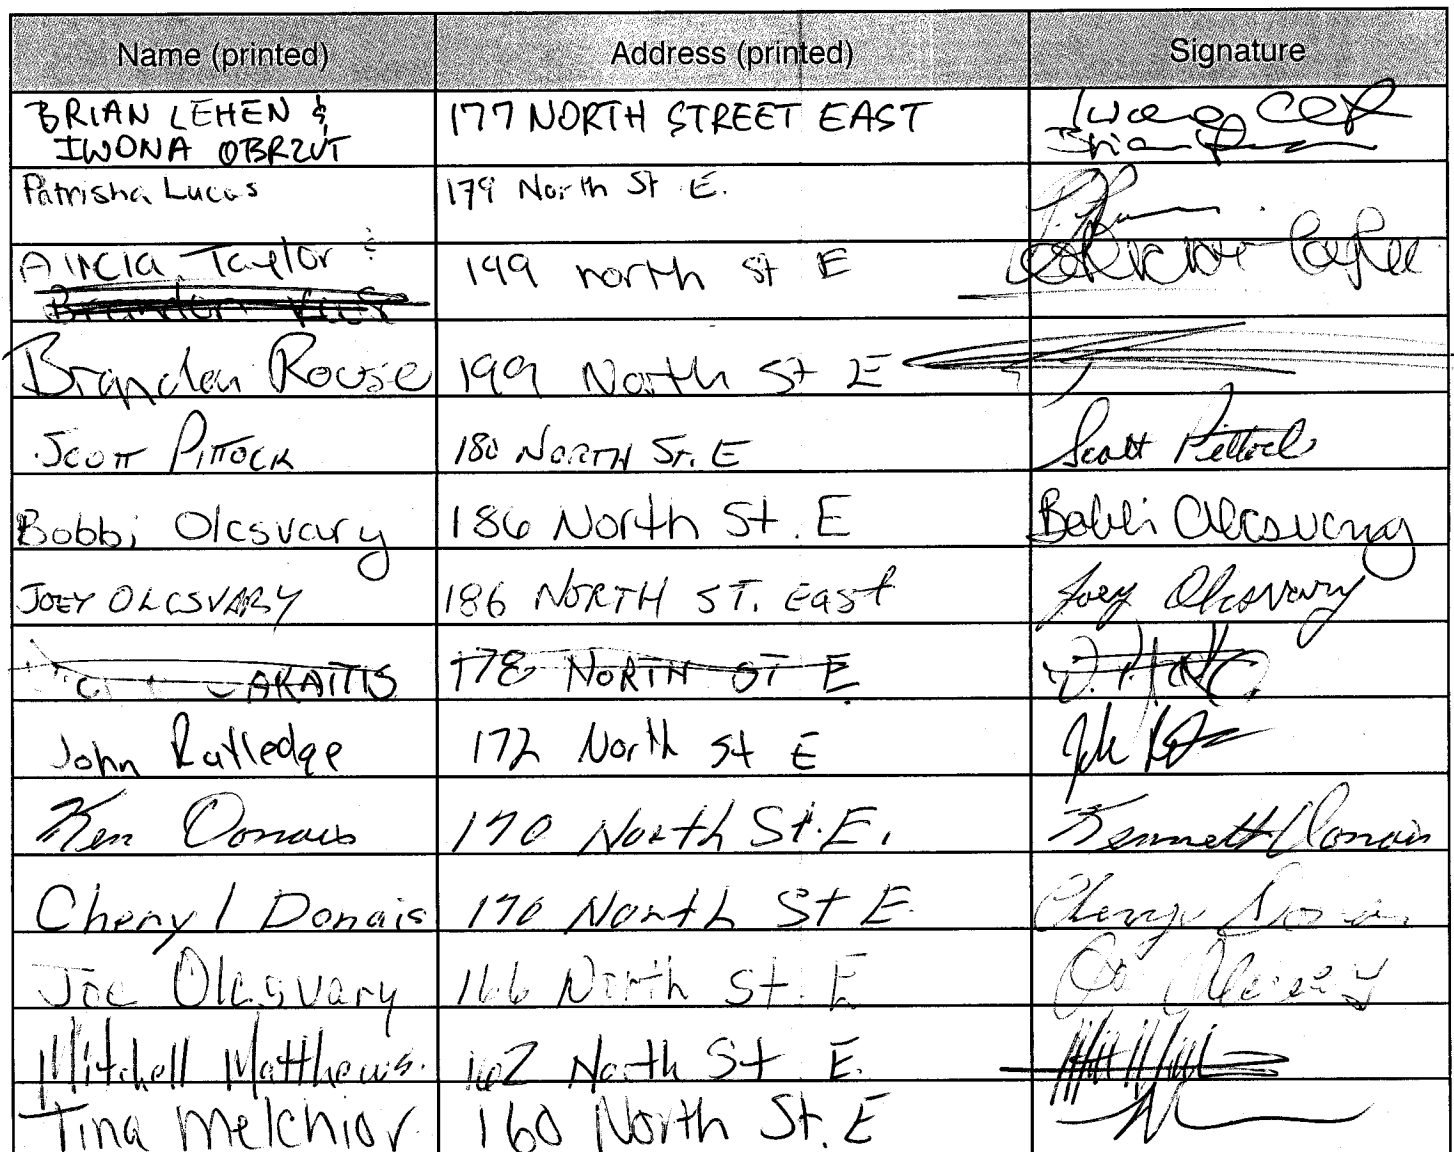 Name (printed) Address (printed) Signature
BRIAN LEHEN & 177 NORTH STREET EAST Iwona
IWONA OBRZUT Brian
Patrisha Lucas 179 North St E.
Alicia Taylor & 199 north St E
Brandon Rouse 199 North St E
SCOTT PITTOCK 180 NORTH ST. E Scott Pittock
Bobbi Olcsvary 186 North St. E Bobbi Olcsvary
JOEY OLCSVARY 186 NORTH ST. East Joey Olcsvary
AKAITIS 178 NORTH ST E
John Rutledge 172 North St E John
Ken Donais 170 North St. E. Kenneth Donais
Cheryl Donais 170 North St E. Cheryl Donais
Joe Olcsvary 166 North St. E Joe Olcsvary
Mitchell Matthews. 162 North St E.
Tina Melchior 160 North St. E